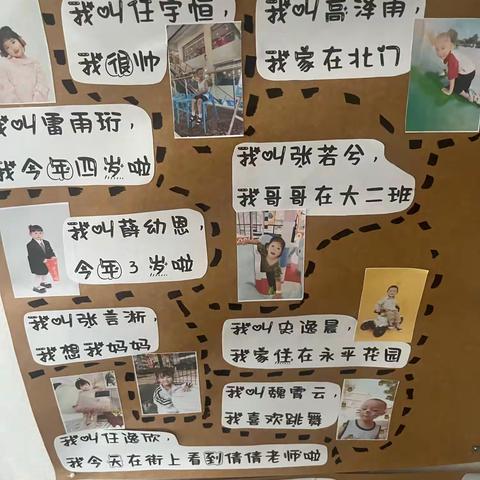 我叫任宇恒，
我很帅
我叫高泽雨，
我家在北门
我叫雷雨珩，
我今年四岁啦
我叫张若兮，
我哥哥在大二班
我叫薛幼恩，
今年3岁啦
我叫张言淅，
我想我妈妈
我叫史逸晨，
我家住在永平花园
我叫魏霄云，
我喜欢跳舞
我叫任逸欣，
我今天在街上看到倩倩老师啦